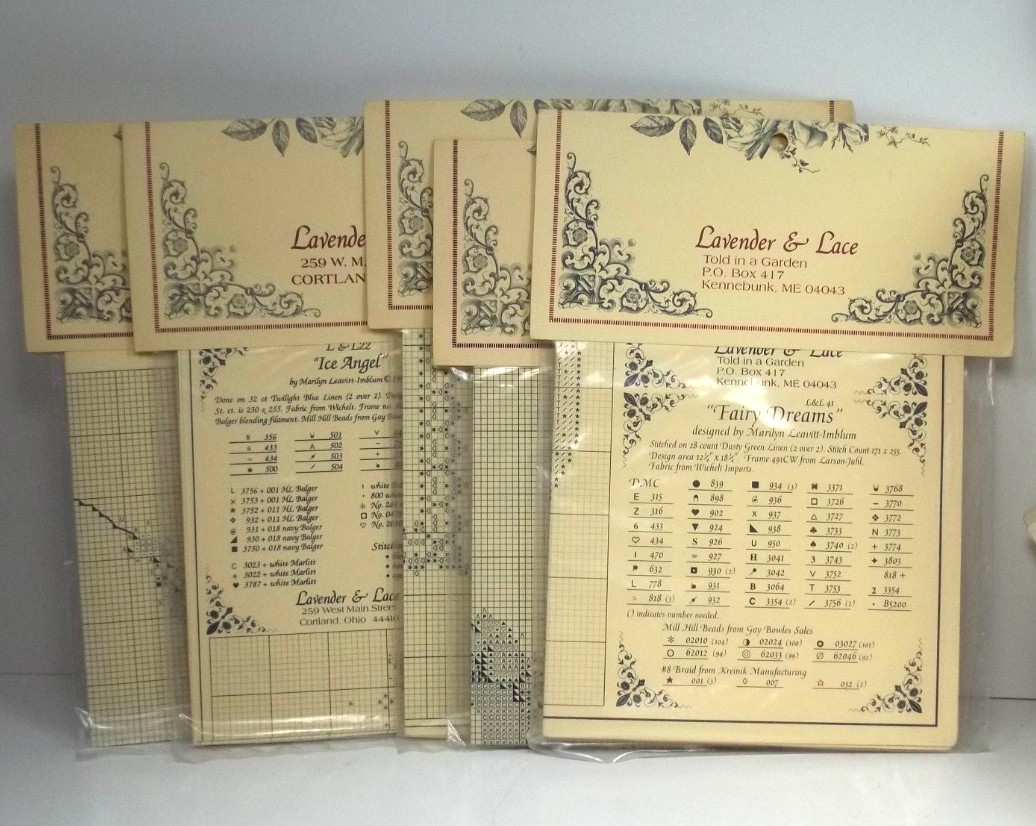 Lavende
259 W. M
CORTLAN
L & L22
"Ice Angel"
by Marilyn Leavitt-Imblum ©
Done on 32 ct Twilight Blue Linen (2 over 2).
St. ct. is 230 x 255. Fabric from Wichelt. Frame no.
Balger blending filament. Mill Hill Beads from Gay
356 501
433 502
434 503
500 504
3756 + 001 HL Balger
3753 + 001 HL Balger
3752 + 011 HL Balger
932 + 011 HL Balger
931 + 018 navy Balger
930 + 018 navy Balger
3750 + 018 navy Balger
C 3023 + white Marlitt
3022 + white Marlitt
♥ 3787 + white Marlitt
Lavender & Lace
259 West Main Street
Cortland, Ohio 44410
Lavender & Lace
Told in a Garden
P.O. Box 417
Kennebunk, ME 04043
Lavender & Lace
Told in a Garden
P.O. Box 417
Kennebunk, ME 04043
L&L 41
"Fairy Dreams"
designed by Marilyn Leavitt-Imblum
Stitched on 28 count Dusty Green Linen (2 over 2). Stitch Count 171 x 255.
Design area 12¼" x 18¼". Frame 491CW from Larson-Juhl.
Fabric from Wichelt Imports.
DMC ● 839 ■ 934 (3) ✖ 3371 3768
E 315 898 936 □ 3726 – 3770
Z 316 ♥ 902 X 937 △ 3727 ❖ 3772
6 433 ▼ 924 ◣ 938 ♣ 3733 N 3773
♡ 434 S 926 U 950 ♠ 3740 (2) + 3774
I 470 = 927 H 3041 3 3743 3803
632 930 (2) 3042 V 3752 818 +
L 778 931 B 3064 T 3753 2 3354
> 818 (3) 932 C 3354 (2) / 3756 (2) • B5200
() indicates number needed.
Mill Hill Beads from Gay Bowles Sales
02010 (104) ◑ 02024 (100) 03027 (101)
○ 62012 (94) ◎ 62033 (99) ∅ 62046 (92)
#8 Braid from Kreinik Manufacturing
★ 001 (3) ◊ 007 ☆ 032 (2)